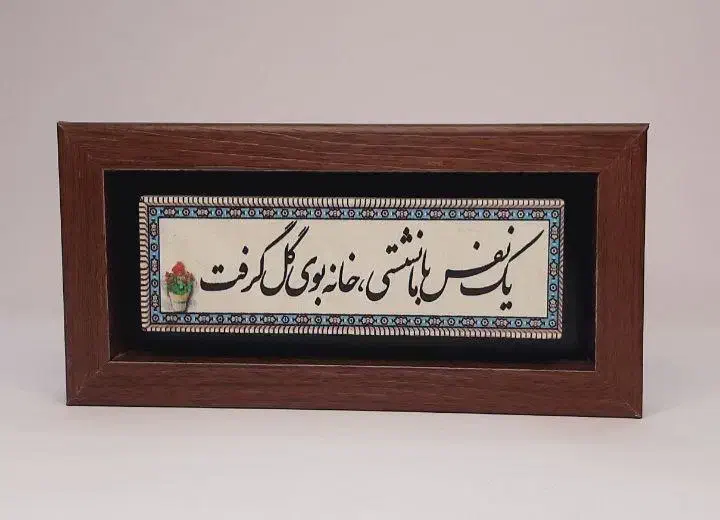 یک نفس با ما نشستی، خانه بوی گل گرفت